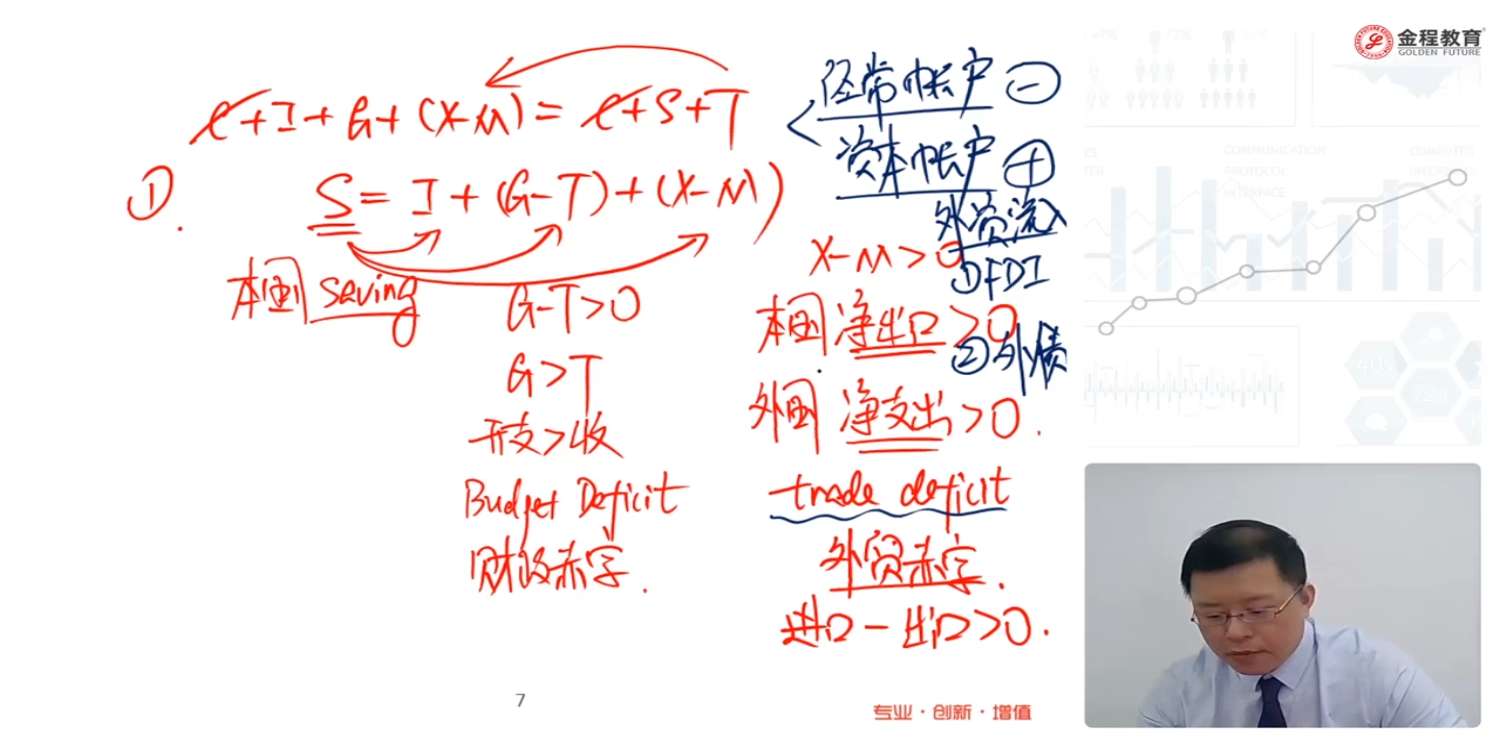 C+I+G+(X-M)=C+S+T
①.
S=I+(G-T)+(X-M)
本国 saving
G-T>0
G>T
开支>收
Budget Deficit
财政赤字.
经常帐户 ⊖
资本帐户 ⊕
外资流入
①FDI
②外债
X-M>0
本国净出口>0
外国净支出>0.
trade deficit
外贸赤字.
进口-出口>0.
7
专业·创新·增值
金程教育
GOLDEN FUTURE
COMMUNICATION
PROTOCOL